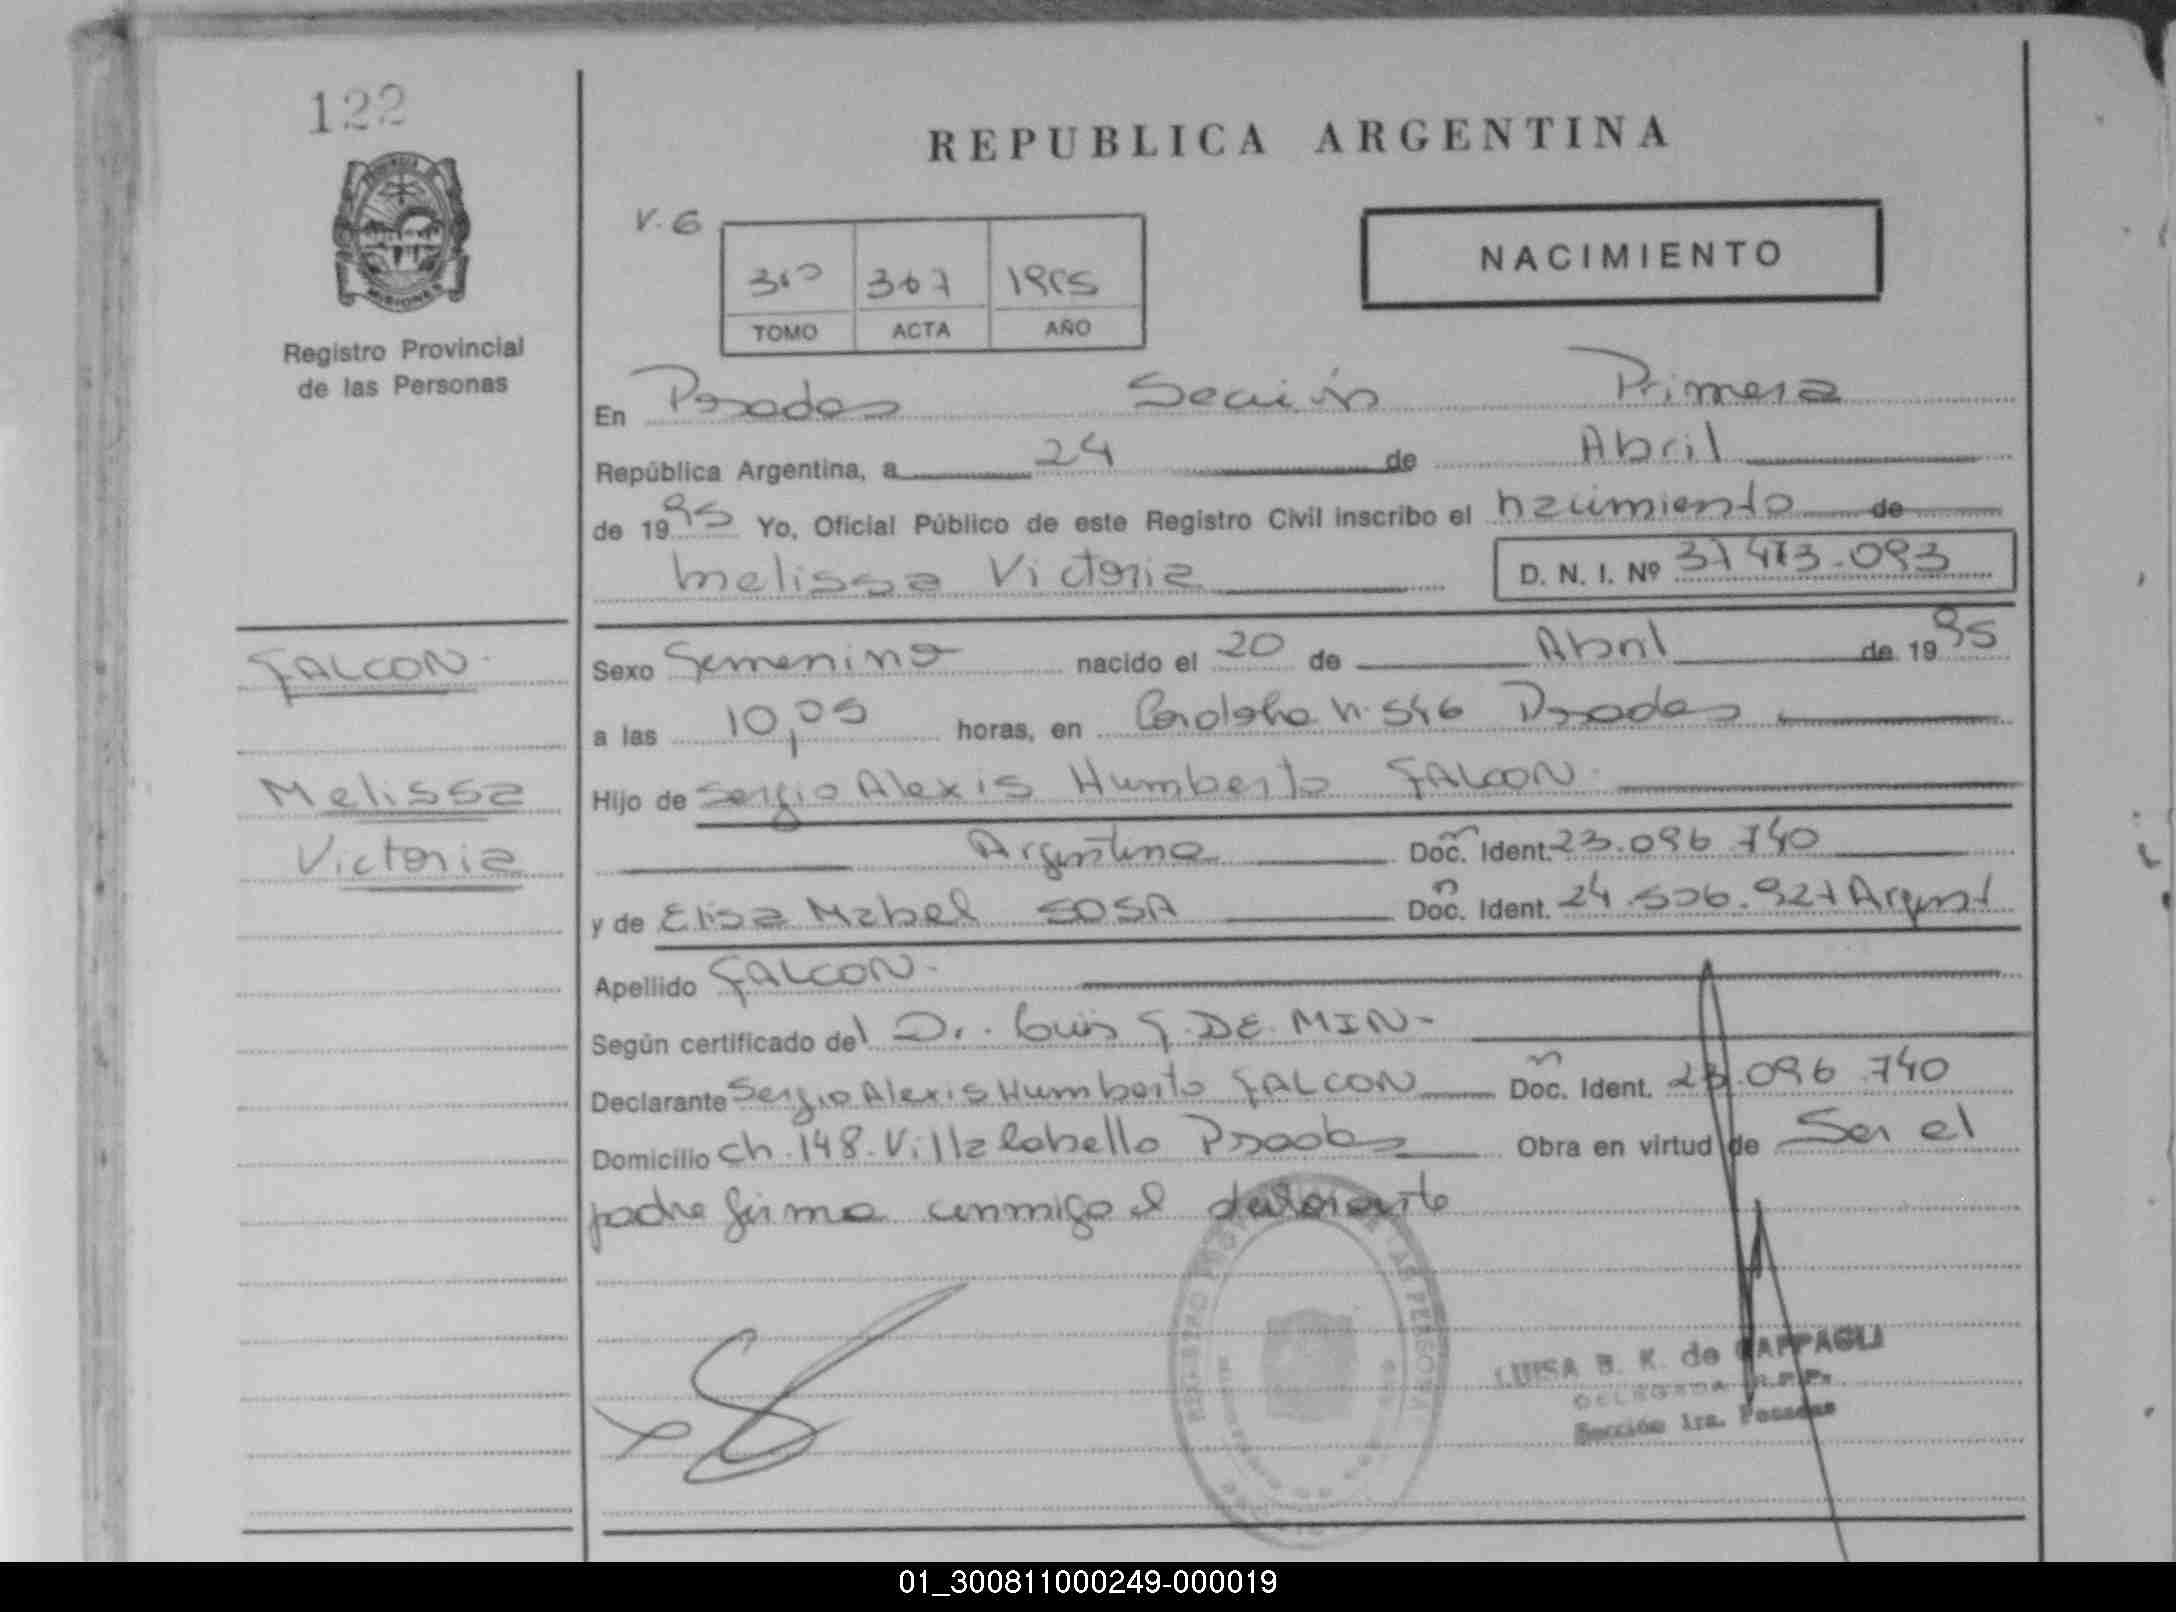 122
REPUBLICA ARGENTINA
V. 6
NACIMIENTO
367 1995
TOMO ACTA AÑO
Registro Provincial
de las Personas
En Posadas Sección Primera
República Argentina, a 24 de Abril
de 1995 Yo, Oficial Público de este Registro Civil inscribo el nacimiento de
Melissa Victoria D. N. I. Nº 093
FALCON.
Sexo Femenino nacido el 20 de Abril de 1995
a las 10,05 horas, en Cordoba N. 546 Posadas
Melissa
Hijo de Sergio Alexis Humberto FALCON.
Victoria
Argentino Doc. Ident. 23.096 740
y de Elisa Mabel SOSA Doc. Ident. 24.506.927 Argent
Apellido FALCON.
Según certificado del Dr. Luis F. DE MIN-
Declarante Sergio Alexis Humberto FALCON Doc. Ident. 23.096.740
Domicilio Ch. 148. Villa Posadas Obra en virtud de Ser el
padre firma conmigo el declarante
LUISA B. K. de CAPPAGLI
DELEGADA R.P.P.
Sección 1ra. Posadas
01_300811000249-000019